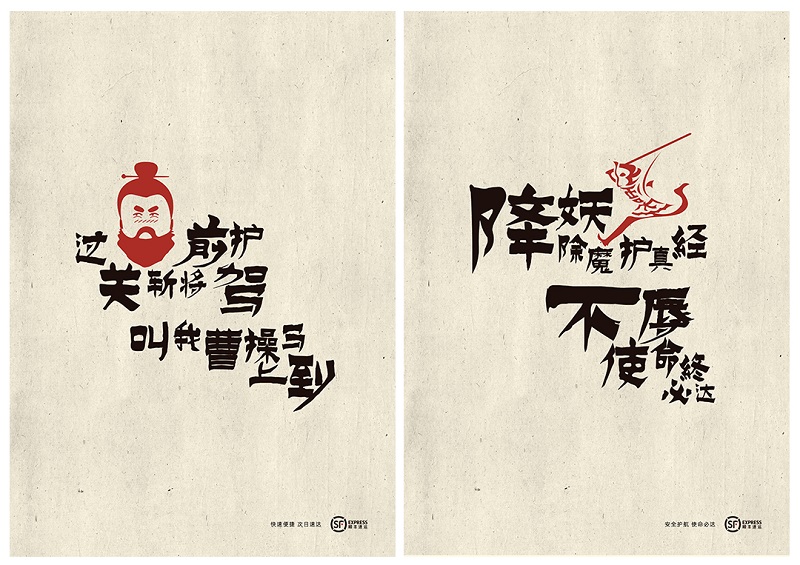 过关斩将前护驾
叫我曹操马上到
快速便捷 次日速达
SF EXPRESS
顺丰速运
降妖除魔护真経
不辱使命終必达
安全护航 使命必达
SF EXPRESS
顺丰速运